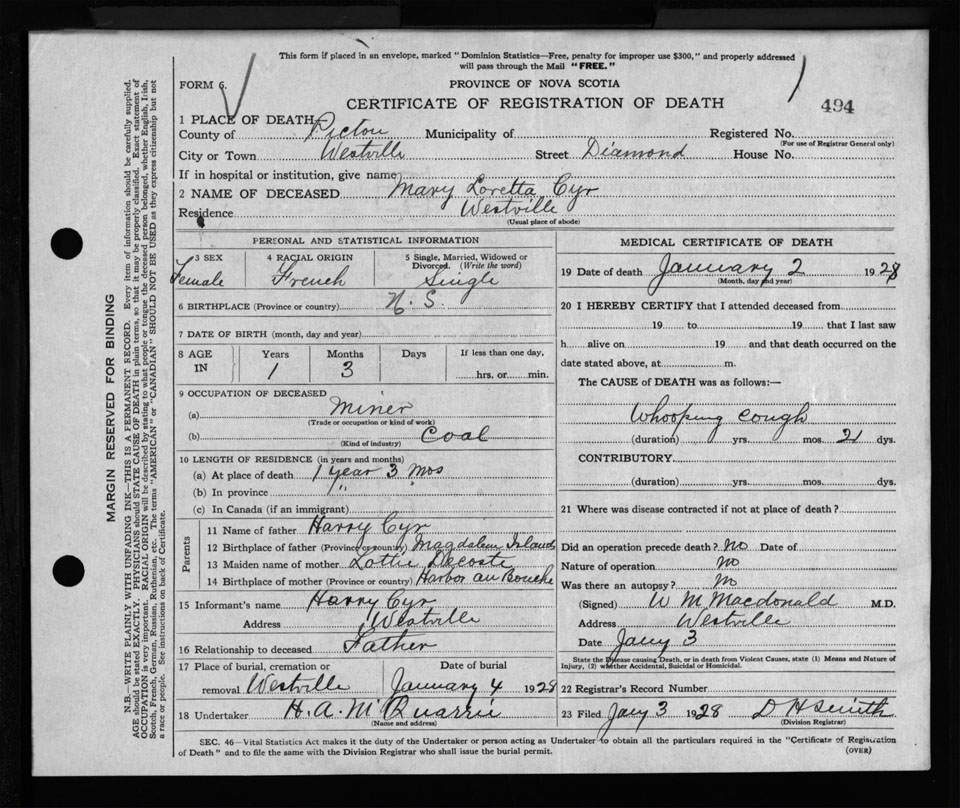 This form if placed in an envelope, marked "Dominion Statistics—Free, penalty for improper use $300," and properly addressed
will pass through the Mail "FREE."
FORM 6.
PROVINCE OF NOVA SCOTIA
CERTIFICATE OF REGISTRATION OF DEATH
494
1 PLACE OF DEATH
County of Pictou Municipality of Registered No.
(For use of Registrar General only)
City or Town Westville Street Diamond House No.
If in hospital or institution, give name
2 NAME OF DECEASED Mary Loretta Cyr
Residence Westville
(Usual place of abode)
PERSONAL AND STATISTICAL INFORMATION
3 SEX Female
4 RACIAL ORIGIN French
5 Single, Married, Widowed or
Divorced. (Write the word)
Single
6 BIRTHPLACE (Province or country) N.S.
7 DATE OF BIRTH (month, day and year)
8 AGE IN Years Months Days If less than one day,
1 3 hrs. or min.
9 OCCUPATION OF DECEASED
(a) Miner
(Trade or occupation or kind of work)
(b) Coal
(Kind of industry)
10 LENGTH OF RESIDENCE (in years and months)
(a) At place of death 1 year 3 mos
(b) In province " "
(c) In Canada (if an immigrant)
Parents
11 Name of father Harry Cyr
12 Birthplace of father (Province or country) Magdalen Islands
13 Maiden name of mother Lottie Decoste
14 Birthplace of mother (Province or country) Harbor au Bouche
15 Informant's name Harry Cyr
Address Westville
16 Relationship to deceased Father
17 Place of burial, cremation or Date of burial
removal Westville January 4 1928
18 Undertaker H. A. McQuarrie
(Name and address)
MEDICAL CERTIFICATE OF DEATH
19 Date of death January 2 1928
(Month, day and year)
20 I HEREBY CERTIFY that I attended deceased from
19 to 19 that I last saw
h alive on 19 and that death occurred on the
date stated above, at m.
The CAUSE of DEATH was as follows:—
Whooping Cough
(duration) yrs. mos. 21 dys.
CONTRIBUTORY
(duration) yrs. mos. dys.
21 Where was disease contracted if not at place of death?
Did an operation precede death? No Date of
Nature of operation No
Was there an autopsy? No
(Signed) W M Macdonald M.D.
Address Westville
Date Jany 3
State the Disease causing Death, or in death from Violent Causes, state (1) Means and Nature of
Injury, (2) whether Accidental, Suicidal or Homicidal.
22 Registrar's Record Number
23 Filed Jany 3 1928 D H Smith
(Division Registrar)
SEC. 46—Vital Statistics Act makes it the duty of the Undertaker or person acting as Undertaker to obtain all the particulars required in the "Certificate of Registration
of Death" and to file the same with the Division Registrar who shall issue the burial permit.
(OVER)
MARGIN RESERVED FOR BINDING
N.B.—WRITE PLAINLY WITH UNFADING INK—THIS IS A PERMANENT RECORD. Every item of information should be carefully supplied.
AGE should be stated EXACTLY. PHYSICIANS should STATE CAUSE OF DEATH in plain terms, so that it may be properly classified. Exact statement of
OCCUPATION is very important. RACIAL ORIGIN will be described by stating to what people or tongue the deceased person belonged, whether English, Irish,
Scotch, French, German, Russian, Ruthenian, etc. The terms "AMERICAN" or "CANADIAN" SHOULD NOT BE USED as they express citizenship but not
a race or people. See instructions on back of Certificate.